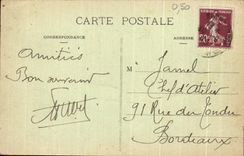 0,50
CARTE POSTALE
CORRESPONDANCE
ADRESSE
Amitiés
Bon souvenir
M Jamel
Chef d'Atelier
91 Rue du Tondu
Bordeaux